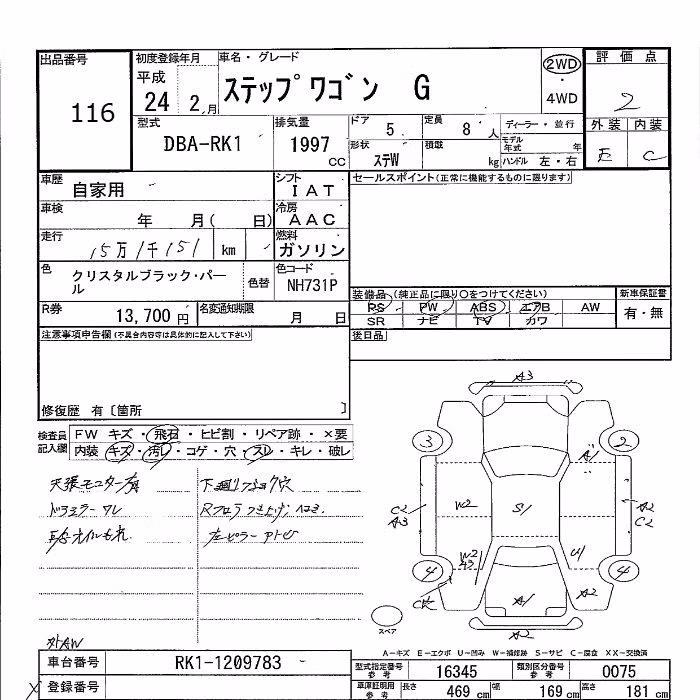 出品番号 初度登録年月 車名・グレード 2WD 評価点
116 平成 24 2 月 ステップワゴン G ・ 4WD 2
型式 排気量 ドア 5 定員 8 人 ディーラー・並行 外装 内装
DBA-RK1 1997 CC 形状 ステW 積載 kg モデル年式 年 ハンドル 左・右 E C
車歴 自家用 シフト IAT セールスポイント(正常に機能するものに限ります)
車検 年 月( 日) 冷房 AAC
走行 15万1千151 km 燃料 ガソリン
色 クリスタルブラック・パール 色替 色コード NH731P
装備品(純正品に限り○をつけてください) 新車保証書
R券 13,700円 名変通知期限 月 日 PS PW ABS エアB AW 有・無
SR ナビ TV カワ
注意事項申告欄(不具合内容等は具体的に記入して下さい) 後日品
修復歴 有〔箇所 〕
検査員記入欄 FW キズ・飛石・ヒビ割・リペア跡・×要
内装 キズ・汚レ・コゲ・穴・スレ・キレ・破レ
A3
3 2
A1
天張モニター
ドラミラーワレ
C2 A3 W2 S1 A2 C2
W2 A3 U1
4 4
A1 A2
A2
スペア
外AW
A−キズ E−エクボ U−凹み W−補修跡 S−サビ C−腐食 XX−交換済
車台番号 RK1-1209783 型式指定番号 参考 16345 類別区分番号 参考 0075
登録番号 車庫証明用 参考 長さ 469 cm 幅 169 cm 高さ 181 cm